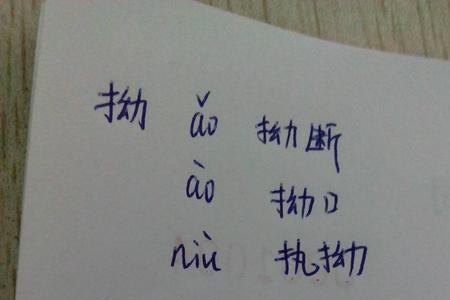 拗 ǎo 拗断
ào 拗口
niù 执拗